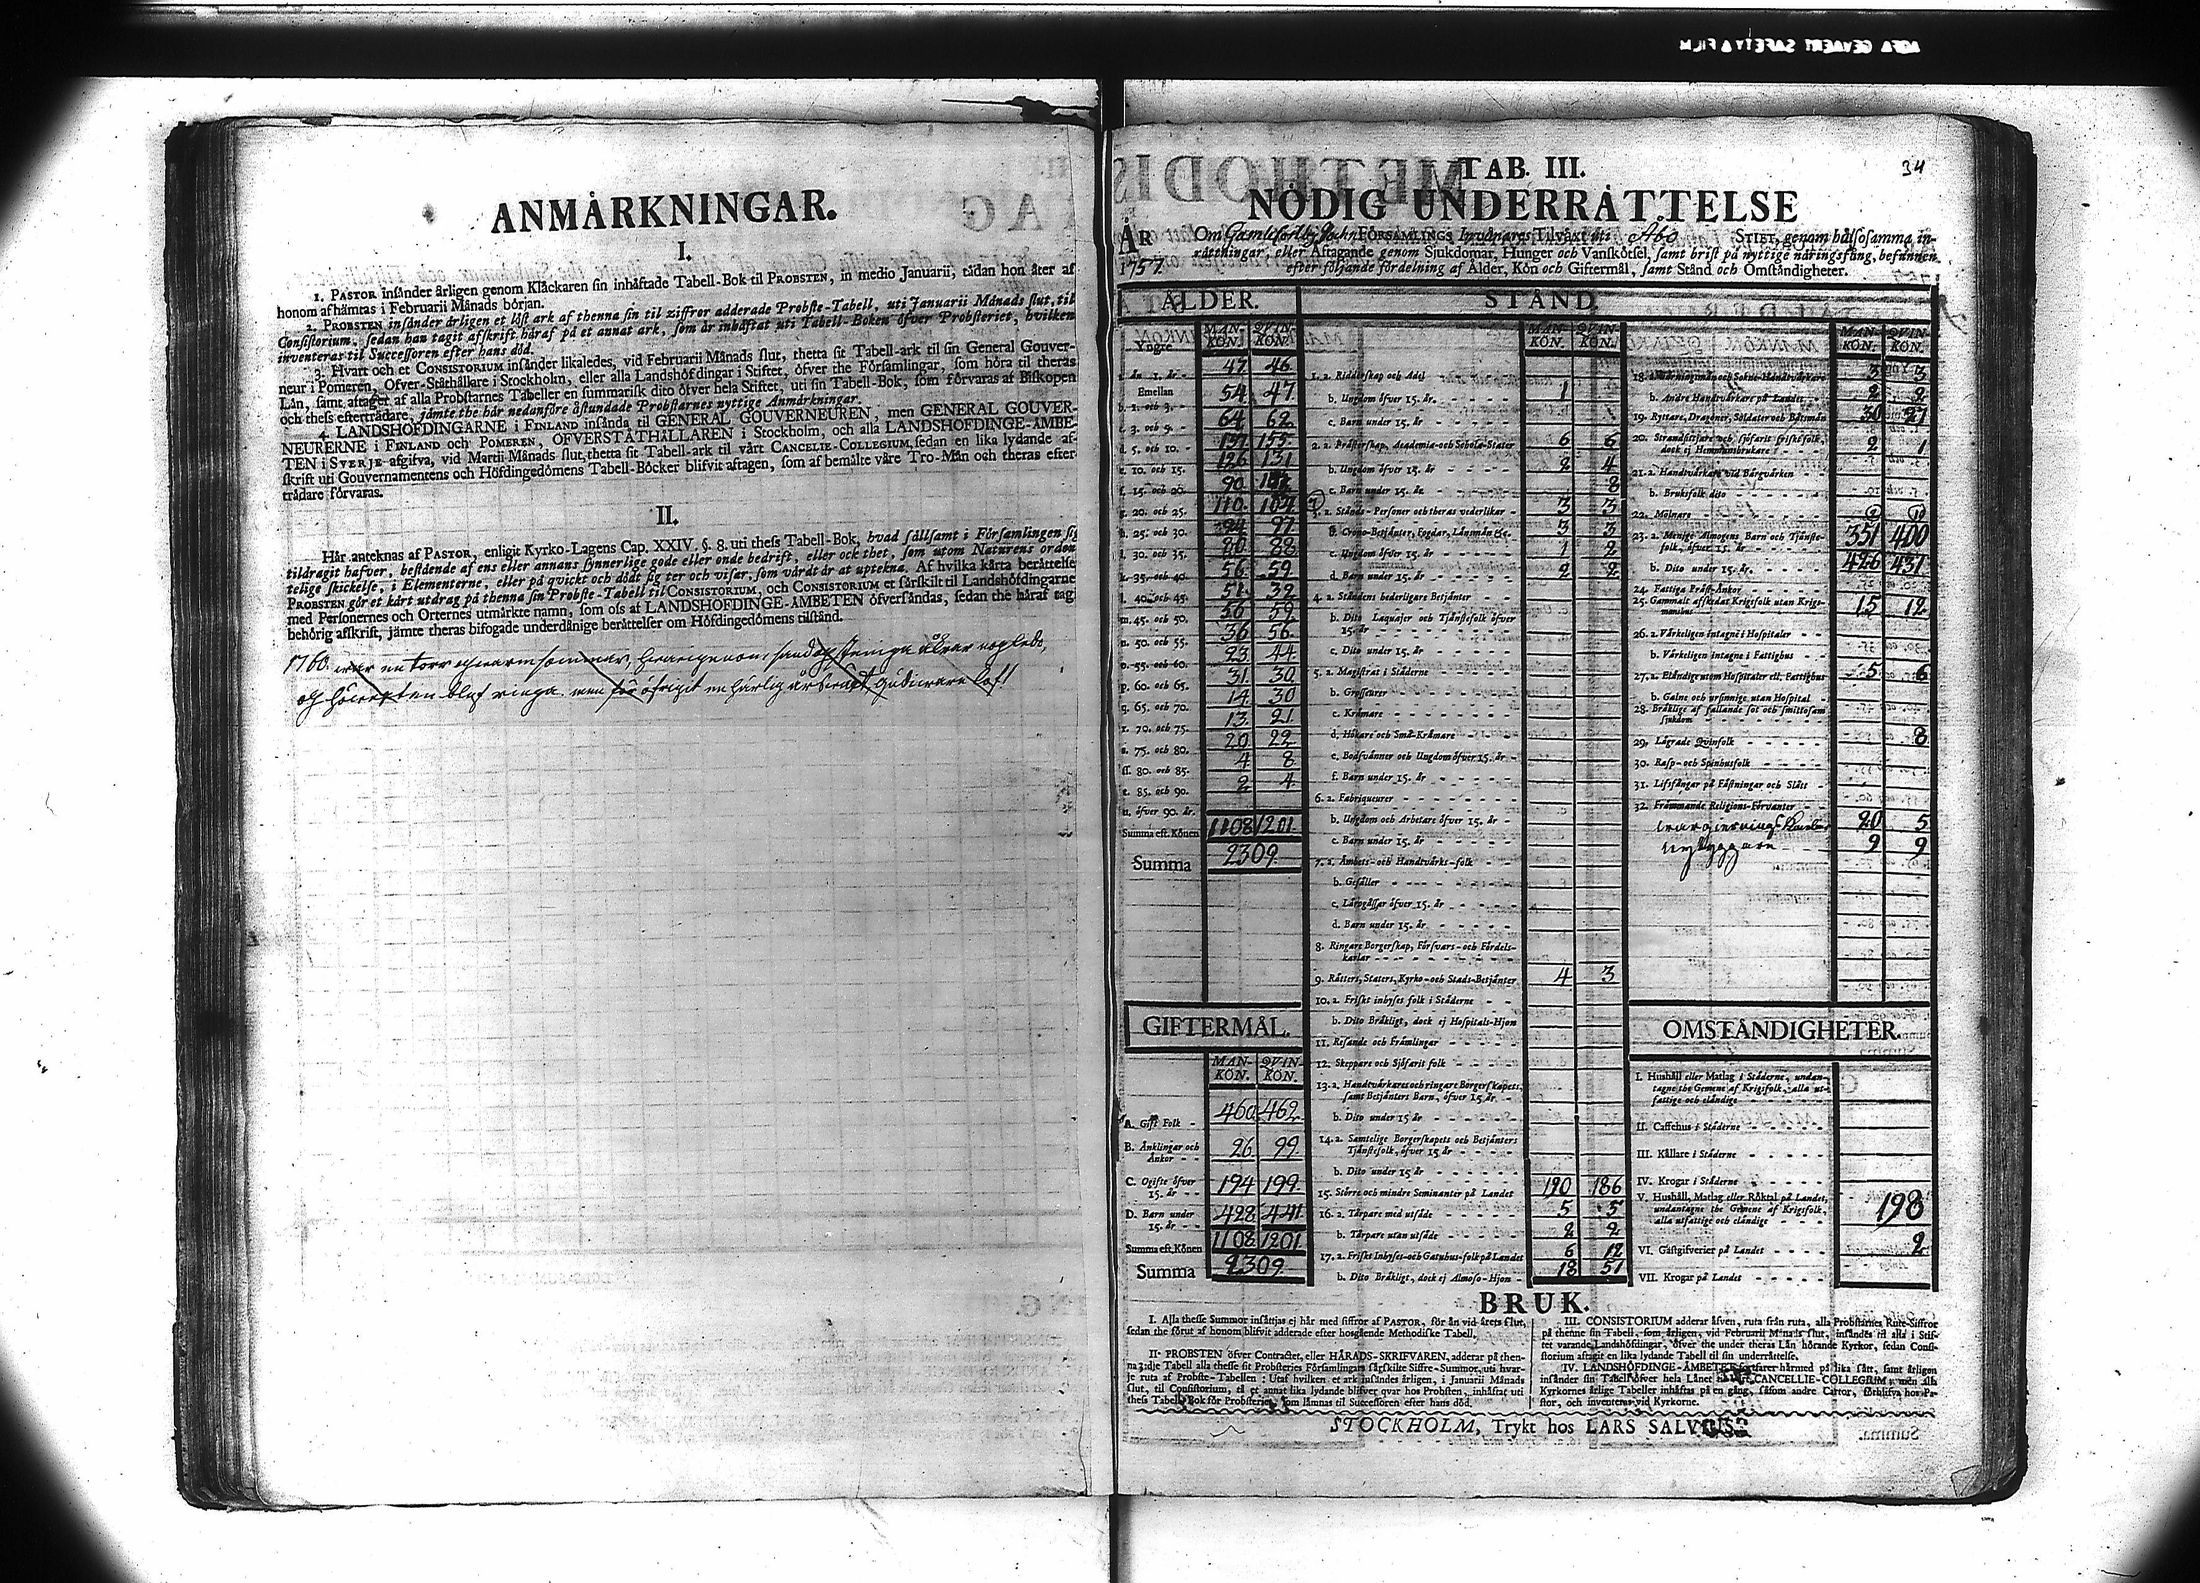 AGFA GEVAERT SAFETY FILM
ANMÄRKNINGAR.
I.
1. PASTOR insänder årligen genom Klåckaren sin inhäftade Tabell-Bok til PROBSTEN, in medio Januarii, tådan hon åter af
honom afhämtas i Februarii Månads början.
2. PROBSTEN insänder årligen et låst ark af thenna sin til ziffror adderade Probste-Tabell, uti Januarii Månads slut, til
Consistorium, sedan han tagit afskrift håraf på et annat ark, som är inhäftat uti Tabell-Boken öfver Probsteriet, hvilken
inventeras til Successoren efter hans död.
3. Hvart och et CONSISTORIUM insänder likaledes, vid Februarii Månads slut, thetta sit Tabell-ark til sin General Gouver-
neur i Pomeren, Öfver-Ståthållare i Stockholm, eller alla Landshöfdingar i Stiftet, öfver the Församlingar, som höra til theras
Län, samt aftager af alla Probstarnes Tabeller en summarisk dito öfver hela Stiftet, uti sin Tabell-Bok, som förvaras af Biskopen
och thess efterträdare, jämte the här nedanföre åstundade Probstarnes nyttige Anmärkningar.
4. LANDSHÖFDINGARNE i FINLAND insända til GENERAL GOUVERNEUREN, men GENERAL GOUVER-
NEURERNE i FINLAND och POMEREN, ÖFVERSTÅTHÅLLAREN i Stockholm, och alla LANDSHÖFDINGE-ÄMBE-
TEN i SVERJE afgifva, vid Martii Månads slut, thetta sit Tabell-ark til vårt CANCELIE-COLLEGIUM, sedan en lika lydande af-
skrift uti Gouvernamentens och Höfdingedömens Tabell-Böcker blifvit aftagen, som af bemälte våre Tro-Män och theras efter-
trädare förvaras.
II.
Här anteknas af PASTOR, enligit Kyrko-Lagens Cap. XXIV. §. 8. uti thess Tabell-Bok, hvad sällsamt i Församlingen sig
tildragit hafver, bestående af ens eller annans synnerlige gode eller onde bedrift, eller ock thet, som utom Naturens ordentelige
skickelse, i Elementerne, eller på qvickt och dödt sig ter och visar, som värdt är at uptekna. Af hvilka kårta berättelse
PROBSTEN gör et kårt utdrag på thenna sin Probste-Tabell til CONSISTORIUM, och CONSISTORIUM et särskilt til Landshöfdingarne
med Personernes och Orternes utmärkte namn, som oss af LANDSHÖFDINGE-ÄMBETEN öfversändas, sedan the häraf tagit
behörig afskrift, jämte theras bifogade underdånige berättelser om Höfdingedömens tillstånd.
1760. war en torr och warm sommar,
TAB. III.
34
NÖDIG UNDERRÄTTELSE
ÅR 1757. Om Gamlecarleby Sochn FÖRSAMLINGS Invånares Tilväxt uti Åbo STIFT, genom hälsosamma in-
rättningar, eller Aftagande genom Sjukdomar, Hunger och Vanskötsel, samt brist på nyttige näringsfång, befunnen
efter följande fördelning af Ålder, Kön och Giftermål, samt Stånd och Omständigheter.
ÅLDER.
MAN-KÖN. QVIN-KÖN.
Yngre
än 1. år - 47 46
Emellan
b. 1. och 3. - 54 47
c. 3. och 5. - 64 62
d. 5. och 10. - 137 155
e. 10. och 15. 126 131
f. 15. och 20. 90
g. 20. och 25. 110 104
h. 25. och 30. 97
i. 30. och 35. 80 88
k. 35. och 40. 56 59
l. 40. och 45. 51 32
m. 45. och 50. 56 59
n. 50. och 55. 36 56
o. 55. och 60. 23 44
p. 60. och 65. 31 30
q. 65. och 70. 14 30
r. 70. och 75. 13 21
s. 75. och 80. 20 22
ss. 80. och 85. 4 8
t. 85. och 90. 2 4
u. öfver 90. år.
Summa eft. Könen 1108 1201
Summa 2309
GIFTERMÅL.
MAN-KÖN. QVIN-KÖN.
A. Gift Folk - 460 462
B. Änklingar och Änkor - - 26 99
C. Ogifte öfver 15. år - - 194 199
D. Barn under 15. år - - 428 441
Summa eft. Könen 1108 1201
Summa 2309
STÅND
MAN-KÖN. QVIN-KÖN.
1. a. Ridderskap och Adel
b. Ungdom öfver 15. år 1
c. Barn under 15. år
2. a. Prästerskap, Academia- och Schola-Stater 6 6
b. Ungdom öfver 15. år 2 4
c. Barn under 15. år 8
3. a. Stånds-Personer och theras vederlikar 3 3
b. Crono-Betjänter, Fogdar, Länsmän &c. 3 3
c. Ungdom öfver 15. år 1 2
d. Barn under 15. år 2 2
4. a. Ståndens hederligare Betjänter
b. Dito Laquajer och Tjänstefolk öfver 15. år
c. Dito under 15. år
5. a. Magistrat i Städerne
b. Grosseurer
c. Krämare
d. Hökare och Små-Krämare
e. Bodsvänner och Ungdom öfver 15. år
f. Barn under 15. år
6. a. Fabriqueurer
b. Ungdom och Arbetare öfver 15. år
c. Barn under 15. år
7. a. Ämbets- och Handtvärks-folk
b. Gesäller
c. Läregåssar öfver 15. år
d. Barn under 15. år
8. Ringare Borgerskap, Försvars- och Fördels-karlar
9. Rätters, Staters, Kyrko- och Stads-Betjänter 4 3
10. a. Friskt inhyses folk i Städerne
b. Dito Bräkligt, dock ej Hospitals-Hjon
11. Resande och Främlingar
12. Skeppare och Sjöfarit folk
13. a. Handtvärkares och ringare Borgerskapets, samt Betjänters Barn, öfver 15 år
b. Dito under 15 år
14. a. Samtelige Borgerskapets och Betjänters Tjänstefolk, öfver 15 år
b. Dito under 15 år
15. Större och mindre Hemmanter på Landet 190 186
16. a. Torpare med utsäde 5 5
b. Torpare utan utsäde 2 2
17. a. Friskt Inhyses- och Gatuhus-folk på Landet 6 12
b. Dito Bräkligt, dock ej Almoso-Hjon 18 51
MAN-KÖN. QVIN-KÖN.
18. a. Gärningsmän och Sokne-Handtvärkare 3 3
b. Andre Handtvärkare på Landet 2 2
19. Ryttare, Dragoner, Soldater och Båtsmän 30 27
20. Strandsittjare och sjöfarit friskt folk, dock ej Hemmansbrukare 2 1
21. a. Handtvärkare vid Bärgvärken
b. Bruksfolk dito
22. Mölnare
23. a. Menige Almogens Barn och Tjänstefolk, öfver 15. år 351 400
b. Dito under 15. år. 426 431
24. Fattiga Präst-Änkor
25. Gammalt afskedat Krigsfolk utan Krigsmanshus 15 12
26. a. Värkeligen intagne i Hospitaler
b. Värkeligen intagne i Fattighus
27. a. Eländige utom Hospitaler ell. Fattighus 5 6
b. Galne och ursinnige utan Hospital
28. Bräklige af fallande sot och smittosam sjukdom
29. Lägrade Qvinfolk 8
30. Rasp- och Spinhusfolk
31. Lifsfångar på Fästningar och Slätt
32. Främmande Religions-Förvanter
20 5
nybyggare 9 9
OMSTÄNDIGHETER.
I. Hushåll eller Matlag i Städerne, undantagne the Gemene af Krigsfolk, alla utfattige och eländige
II. Caffehus i Städerne
III. Källare i Städerne
IV. Krogar i Städerne
V. Hushåll, Matlag eller Röktal på Landet, undantagne the Gemene af Krigsfolk, alla utfattige och eländige 198
VI. Gästgifverier på Landet 2
VII. Krogar på Landet
BRUK.
I. Alla thesse Summor insättjas ej här med siffror af PASTOR, för än vid årets slut,
sedan the förut af honom blifvit adderade efter hosgående Methodiske Tabell.
II. PROBSTEN öfver Contractet, eller HÄRADS-SKRIFVAREN, adderar på then-
na 3:dje Tabell alla thesse sit Probsteries Församlingars särskilte Siffre-Summor, uti hvar-
je ruta af Probste-Tabellen: Utaf hvilken et ark insändes årligen, i Januarii Månads
slut, til Consistorium, så et annat lika lydande blifver qvar hos Probsten, inhäftat uti
thess Tabell Bok för Probsteriet, som lämnas til Successoren efter hans död.
III. CONSISTORIUM adderar äfven, ruta från ruta, alla Probstarnes Rute-Siffror
på thenne sin Tabell, som årligen, vid Februarii Månads slut, insändes til alla i Stif-
tet varande Landshöfdingar, öfver the under theras Län hörande Kyrkor, sedan Consi-
storium aftagit en lika lydande Tabell til sin underrättelse.
IV. LANDSHÖFDINGE-ÄMBETET fortfarer härmed på lika sätt, samt årligen
insänder sin Tabell öfver hela Länet CANCELLIE-COLLEGIUM; men alla
Kyrkornes årlige Tabeller inhäftas på en gång, såsom andre Cartor, förblifva hos Pa-
stor, och inventeras vid Kyrkorne.
STOCKHOLM, Trykt hos LARS SALVIUS.